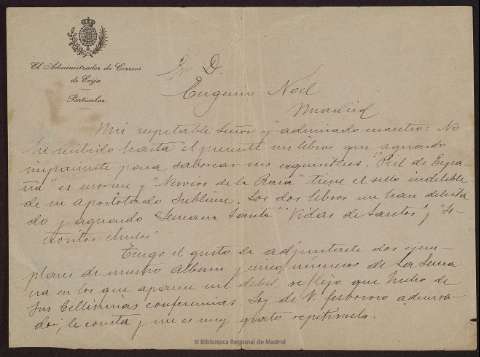 El Administrador de Correos
de Ecija
Particular
Sr. D.
Eugenio Noel
Madrid
Mi respetable Señor y admirado maestro: No
he recibido hasta el presente sus libros que aguardo
impaciente para saborear sus exquisiteces. "Piel de España"
es enorme y "Nervios de la Raza" tiene el sello indeleble
de su apostolado sublime. Los dos libros me han deleitado
y aguardo "Semana Santa" "Vidas de Santos" y
Tengo el gusto de adjuntarle dos ejemplares
de nuestro Album y cinco números de La Semana
en los que aparece un débil reflejo que hube de
sus bellísimas conferencias. Soy de V. fervoroso admirador,
le consta y me es muy grato repetírselo.
© Biblioteca Regional de Madrid